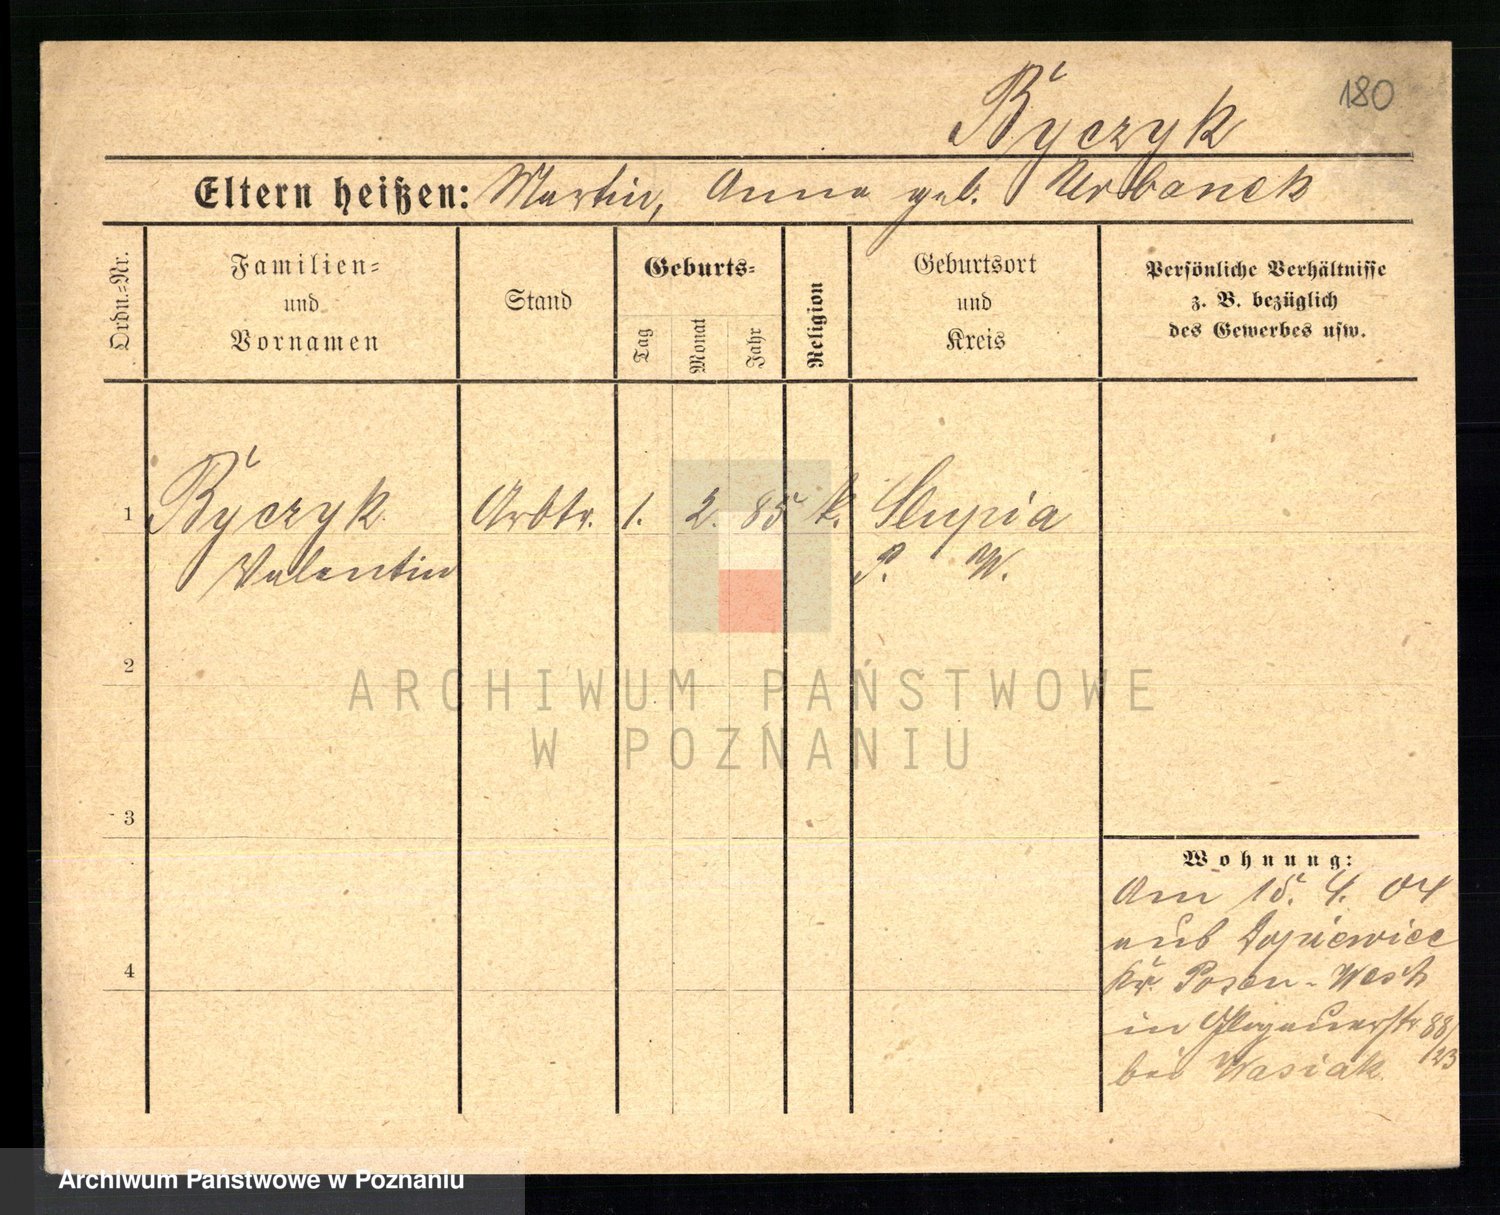 180
Byczyk
Eltern heißen: Martin, Anna geb. Urbanek
Ordn.=Nr.
Familien=
und
Vornamen
Stand
Geburts=
Tag
Monat
Jahr
Religion
Geburtsort
und
Kreis
Persönliche Verhältnisse
z. B. bezüglich
des Gewerbes usw.
1 Byczyk Arbtr. 1. 2. 85 k. Slupia
Valentin P. W.
2
3
4
Wohnung:
Am 15. 4. 04
aus Dopiewiec
Kr. Posen-West
in Glogauerstr 88/
123
bei Wasiak.
ARCHIWUM PAŃSTWOWE
W POZNANIU
Archiwum Państwowe w Poznaniu